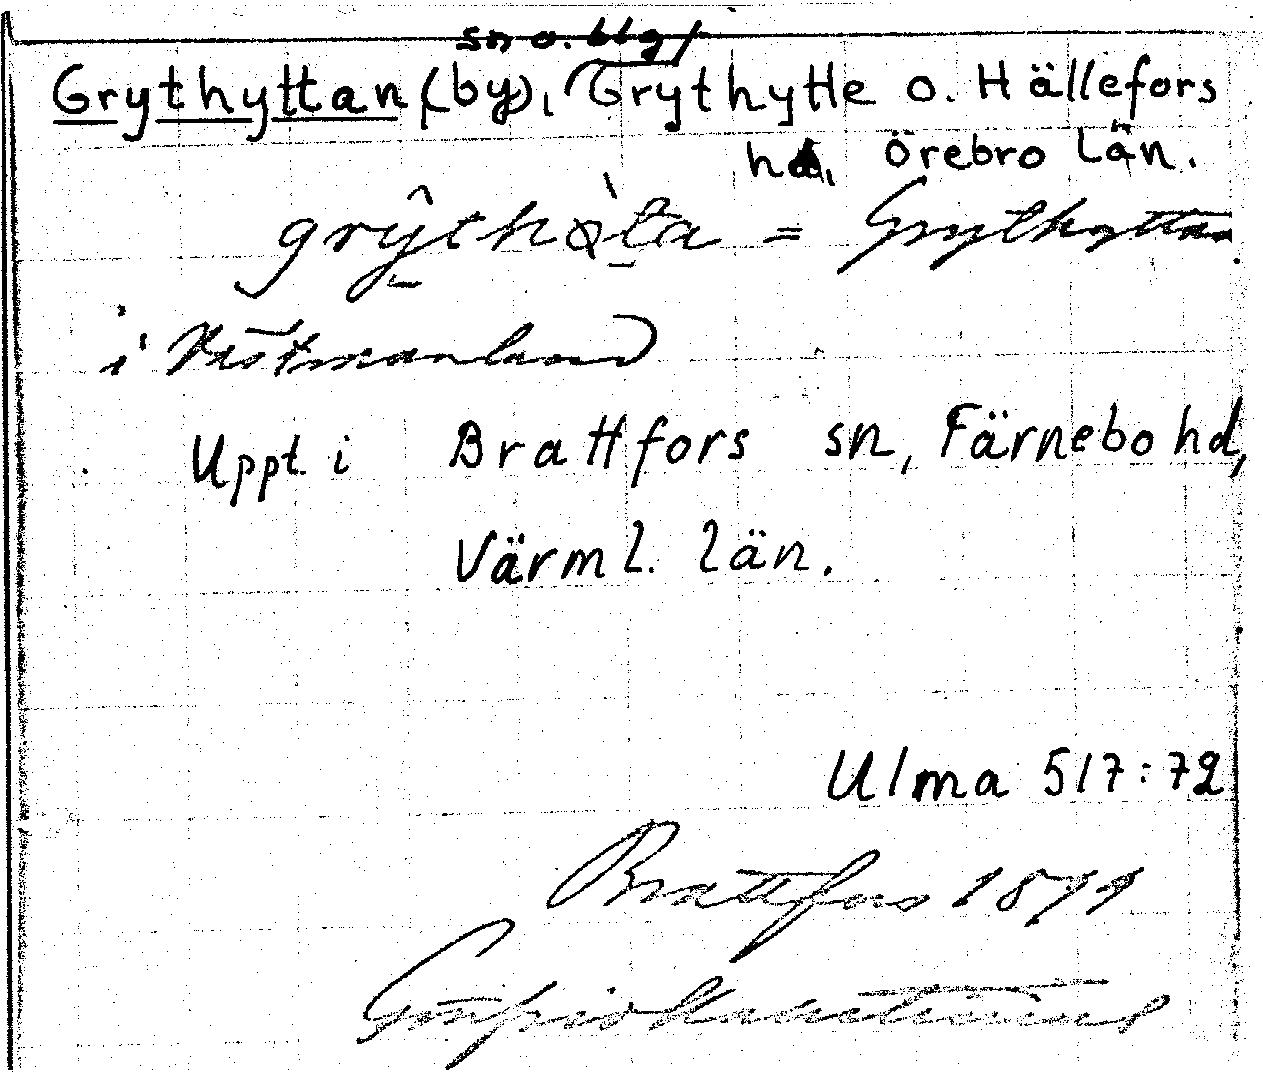 sn o. blg
Grythyttan (by), Grythytte o. Hällefors
hd, Örebro län.
= Grythyttan
i Västmanland
Uppt. i Brattfors sn, Färnebo hd,
Värml. län.
Ulma 517:72
Brattfors 1879